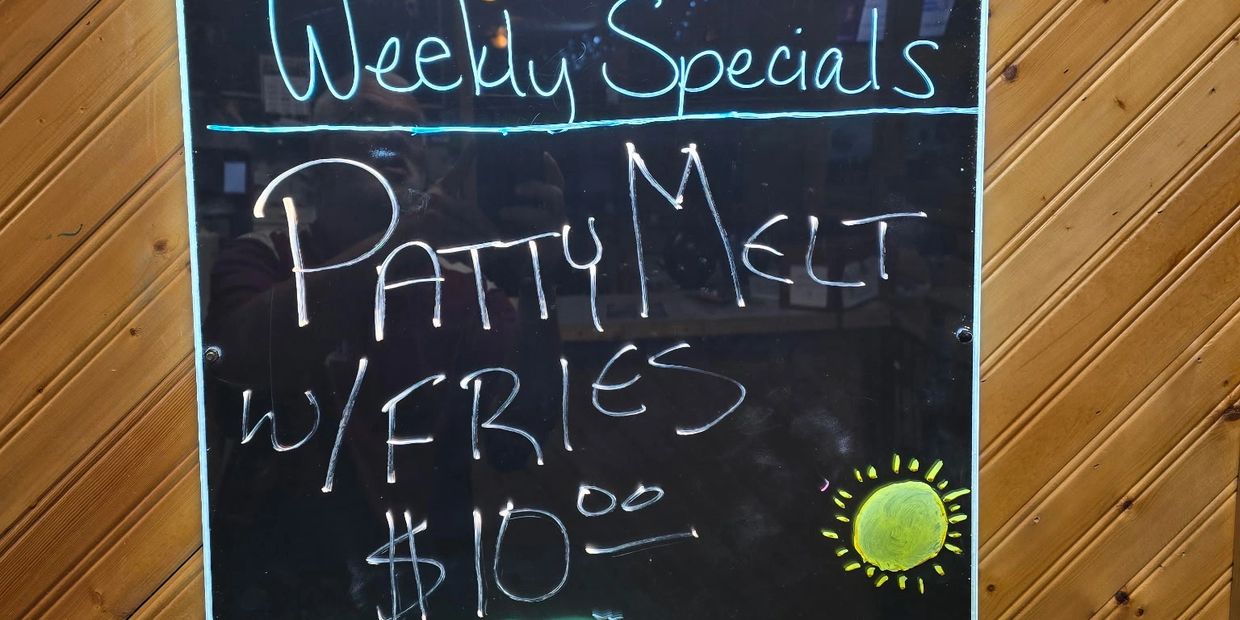 Weekly Specials
PATTY MELT
W/FRIES
$10.00